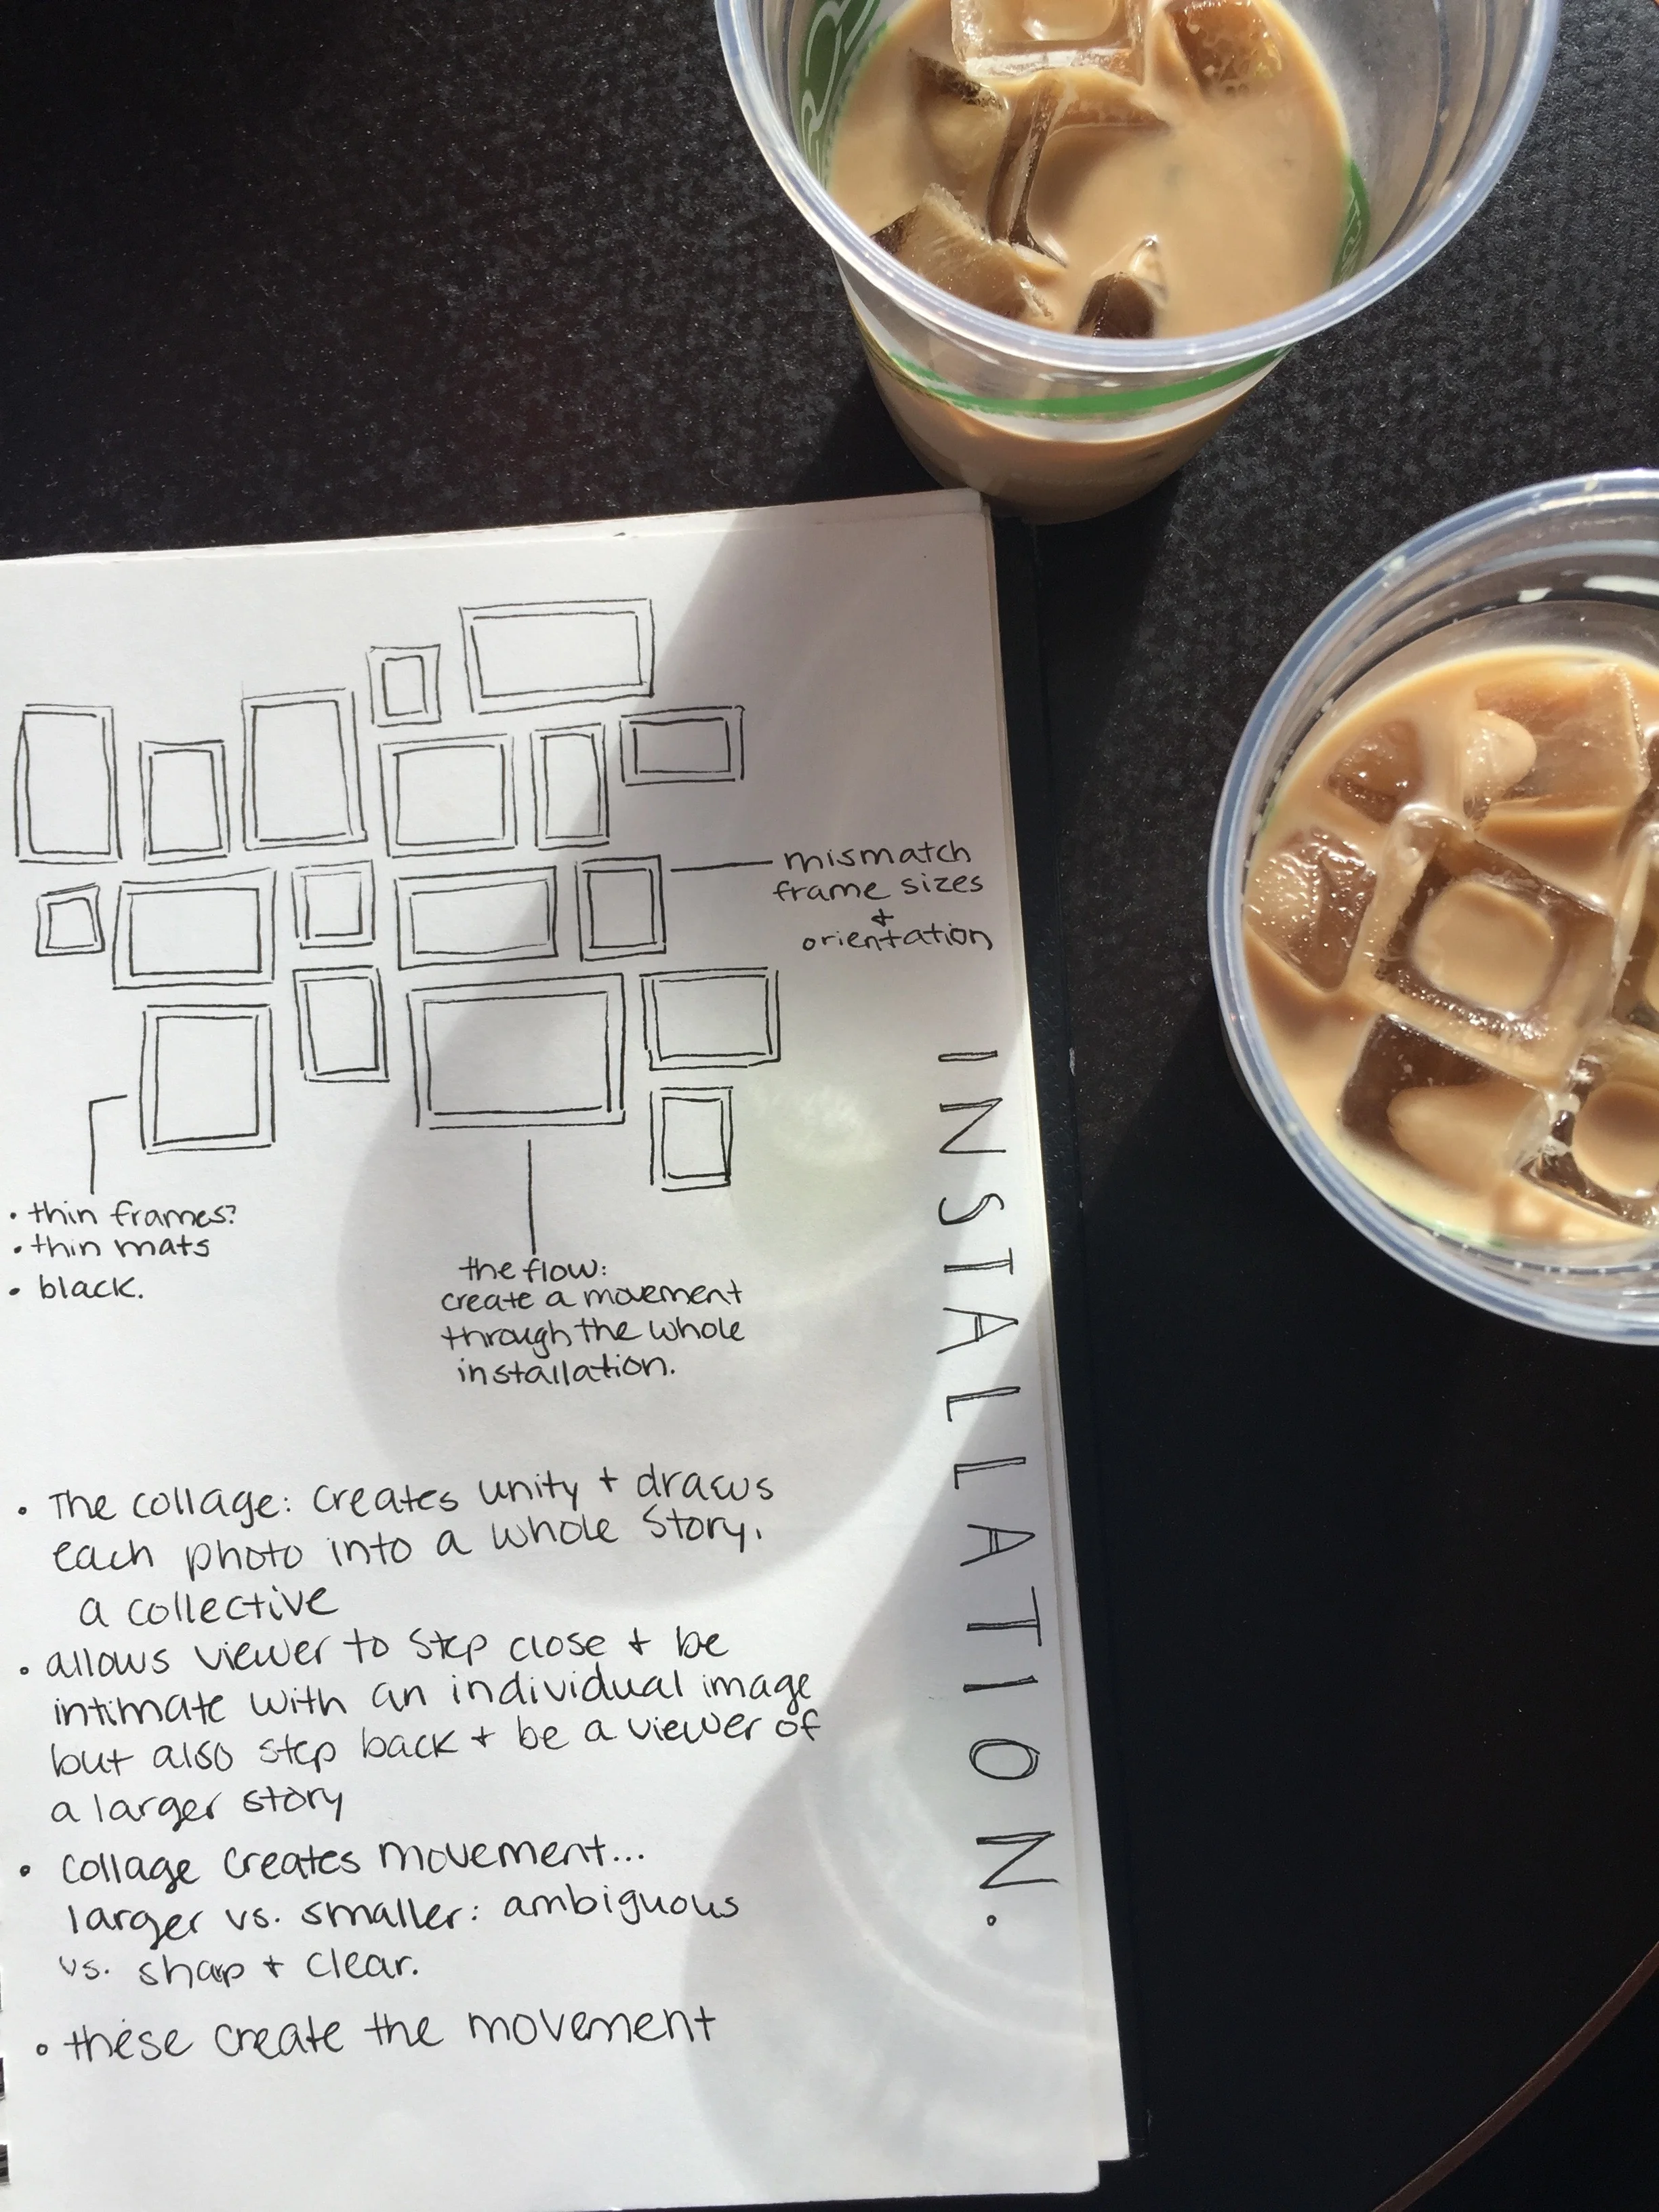 mismatch
frame sizes
+
orientation
• thin frames?
• thin mats
• black.
the flow:
create a movement
through the whole
installation.
INSTALLATION.
• The collage: creates unity + draws
each photo into a whole story.
a collective
• allows viewer to step close + be
intimate with an individual image
but also step back + be a viewer of
a larger story
• collage creates movement...
larger vs. smaller: ambiguous
vs. shap + clear.
• these create the movement